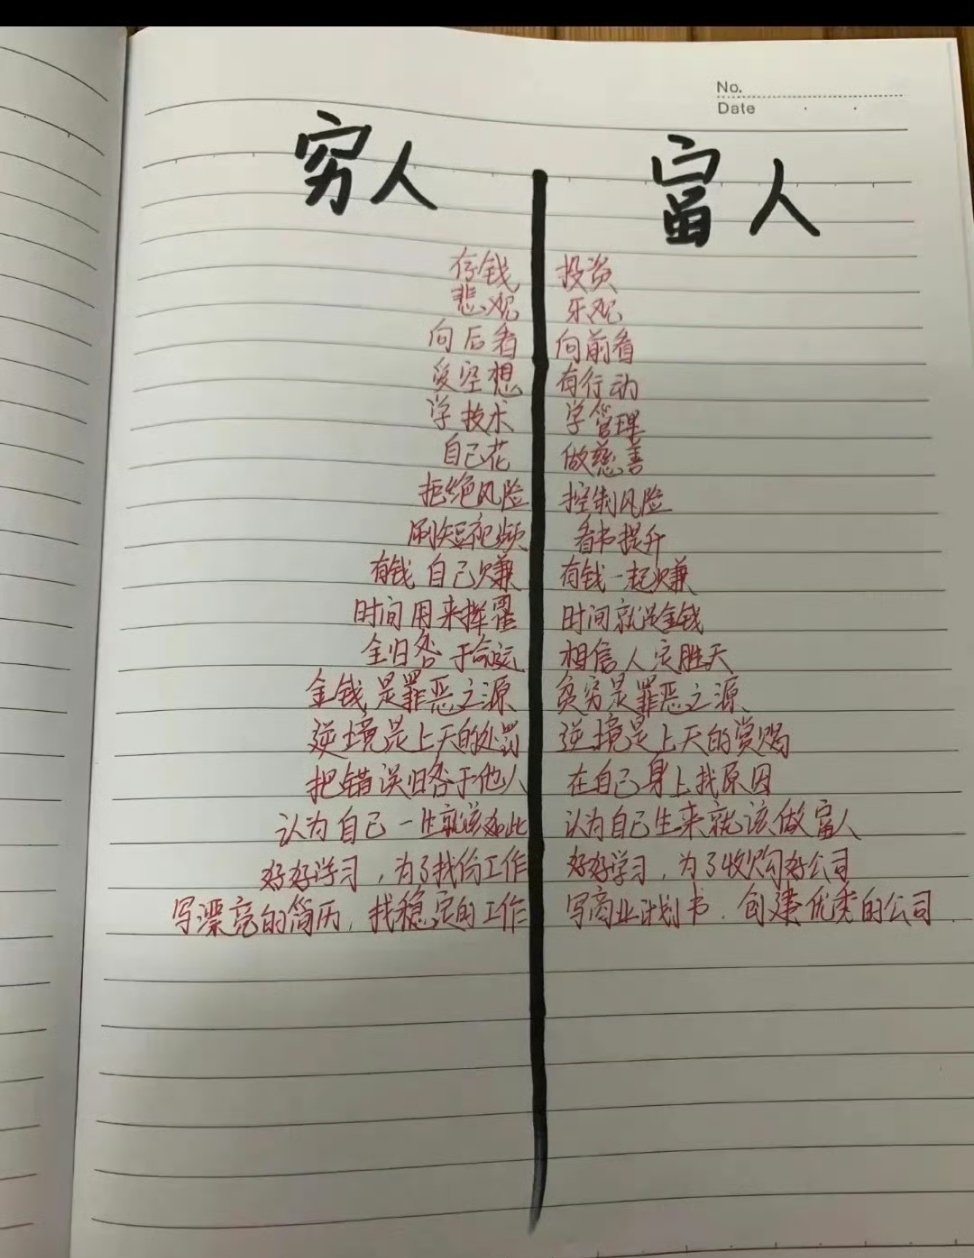 No.
Date
穷人 富人
存钱 投资
悲观 乐观
向后看 向前看
爱空想 有行动
学技术 学管理
自己花 做慈善
拒绝风险 控制风险
刷短视频 看书提升
有钱自己赚 有钱一起赚
时间用来挥霍 时间就是金钱
全归咎于命运 相信人定胜天
金钱是罪恶之源 贫穷是罪恶之源
逆境是上天的处罚 逆境是上天的赏赐
把错误归咎于他人 在自己身上找原因
认为自己一生就该如此 认为自己生来就该做富人
好好学习,为了找份工作 好好学习,为了收购好公司
写漂亮的简历,找稳定的工作 写商业计划书,创建优秀的公司